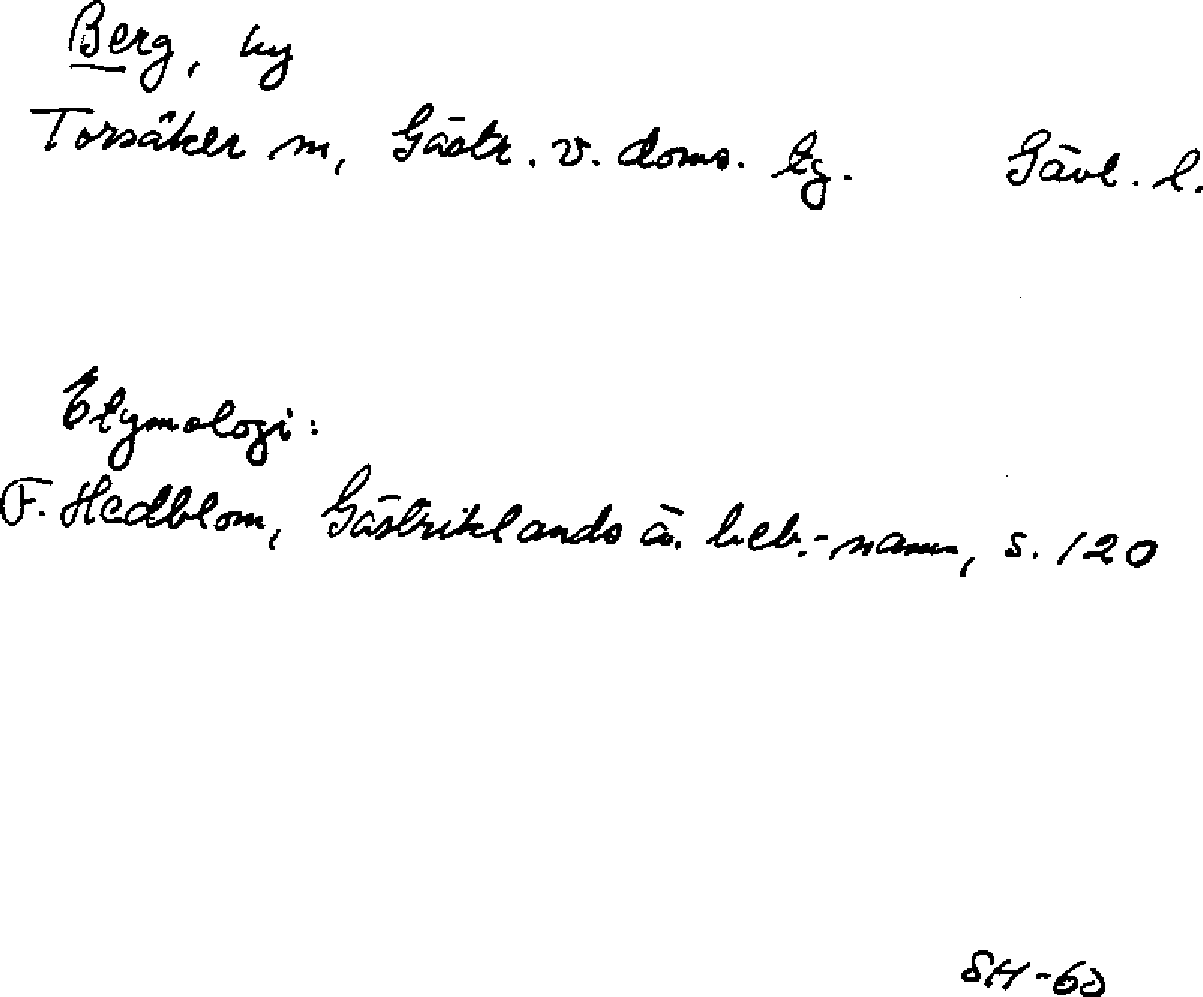 Berg, by
Torsåker sn, Gästr. v. doms. tg. Gävl. l.
Etymologi:
F. Hedblom, Gästriklands ä. beb.-namn, s. 120
SH-60